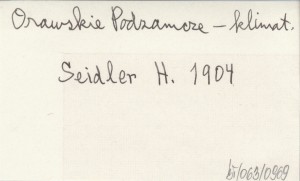 Orawskie Podzamcze – klimat.
Seidler H. 1904
bī/063/0969